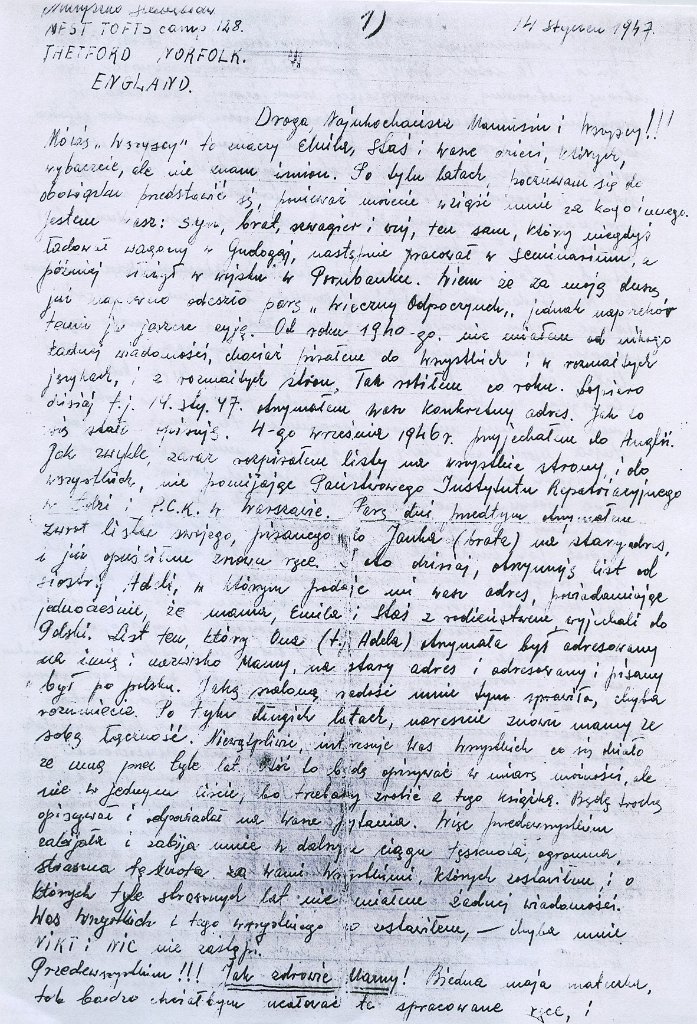 WEST TOFTS camp 128.
THETFORD NORFOLK.
ENGLAND.
1)
14 styczeń 1947.
Droga Najukochańsza Mamusiu i Wszyscy!!!
Mówię „Wszyscy" to znaczy Emila, Staś i wasze dzieci, których,
wybaczcie, ale nie znam imion. Po tylu latach, poczuwam się do
obowiązku przedstawić się, ponieważ możecie wziąść mnie za kogo innego.
Jestem wasz: syn, brat, szwagier i wuj, ten sam, który niegdyś
ładował wagony w Gudogaj, następnie pracował w Seminarium, a
później służył w wojsku w Prombanku. Wiem że za moją duszę
już napewno odeszło parę „Wieczny Odpoczynek", jednak naprzekór
temu ja jeszcze żyję. Od roku 1940-go. nie miałem od nikogo
żadnej wiadomości, chociaż pisałem do wszystkich i w rozmaitych
językach, i z rozmaitych stron, Tak robiłem co roku. Dopiero
dzisiaj t.j. 14. sty. 47. otrzymałem wasz konkretny adres. Jak to
się stało opisuję. 4-go września 1946 r. przyjechałem do Anglii.
Jak zwykle, zaraz rozpisałem listy na wszystkie strony, i do
wszystkich, nie pomijając Państwowego Instytutu Repatriacyjnego
w Łodzi i P.C.K. w Warszawie. Parę dni przedtym otrzymałem
zwrot listu swojego, pisanego do Janka (brata) na stary adres,
i już opuściłem znowu ręce. I oto dzisiaj, otrzymuję list od
siostry Adeli, w którym podaje mi wasz adres, powiadamiając
jednocześnie, że mama, Emila i Staś z rodzeństwem wyjechali do
Polski. List ten, który Ona (t.j. Adela) otrzymała był adresowany
na imię i nazwisko Mamy, na stary adres i adresowany i pisany
był po polsku. Jaką szaloną radość mnie tym sprawiła, chyba
rozumiecie. Po tylu długich latach, nareszcie znowu mamy ze
sobą łączność. Niewątpliwie, interesuje Was wszystkich co się działo
ze mną przez tyle lat. Otóż to będę opisywać w miarę możności, ale
nie w jednym liście, bo trzebaby zrobić z tego książkę. Będę trochę
opisywał i odpowiadał na wasze pytania. Więc przedewszystkim
zabijała i zabija mnie w dalszym ciągu tęsknota, ogromna,
straszna tęsknota za wami wszystkimi, których zostawiłem, i o
których tyle strasznych lat nie miałem żadnej wiadomości.
Was wszystkich i tego wszystkiego co zostawiłem, — chyba mnie
NIKT i NIC nie zastąpi.
Przedewszystkim!!! Jak zdrowie Mamy! Biedna moja mateczka,
tak bardzo chciałbym ucałować te spracowane ręce, i